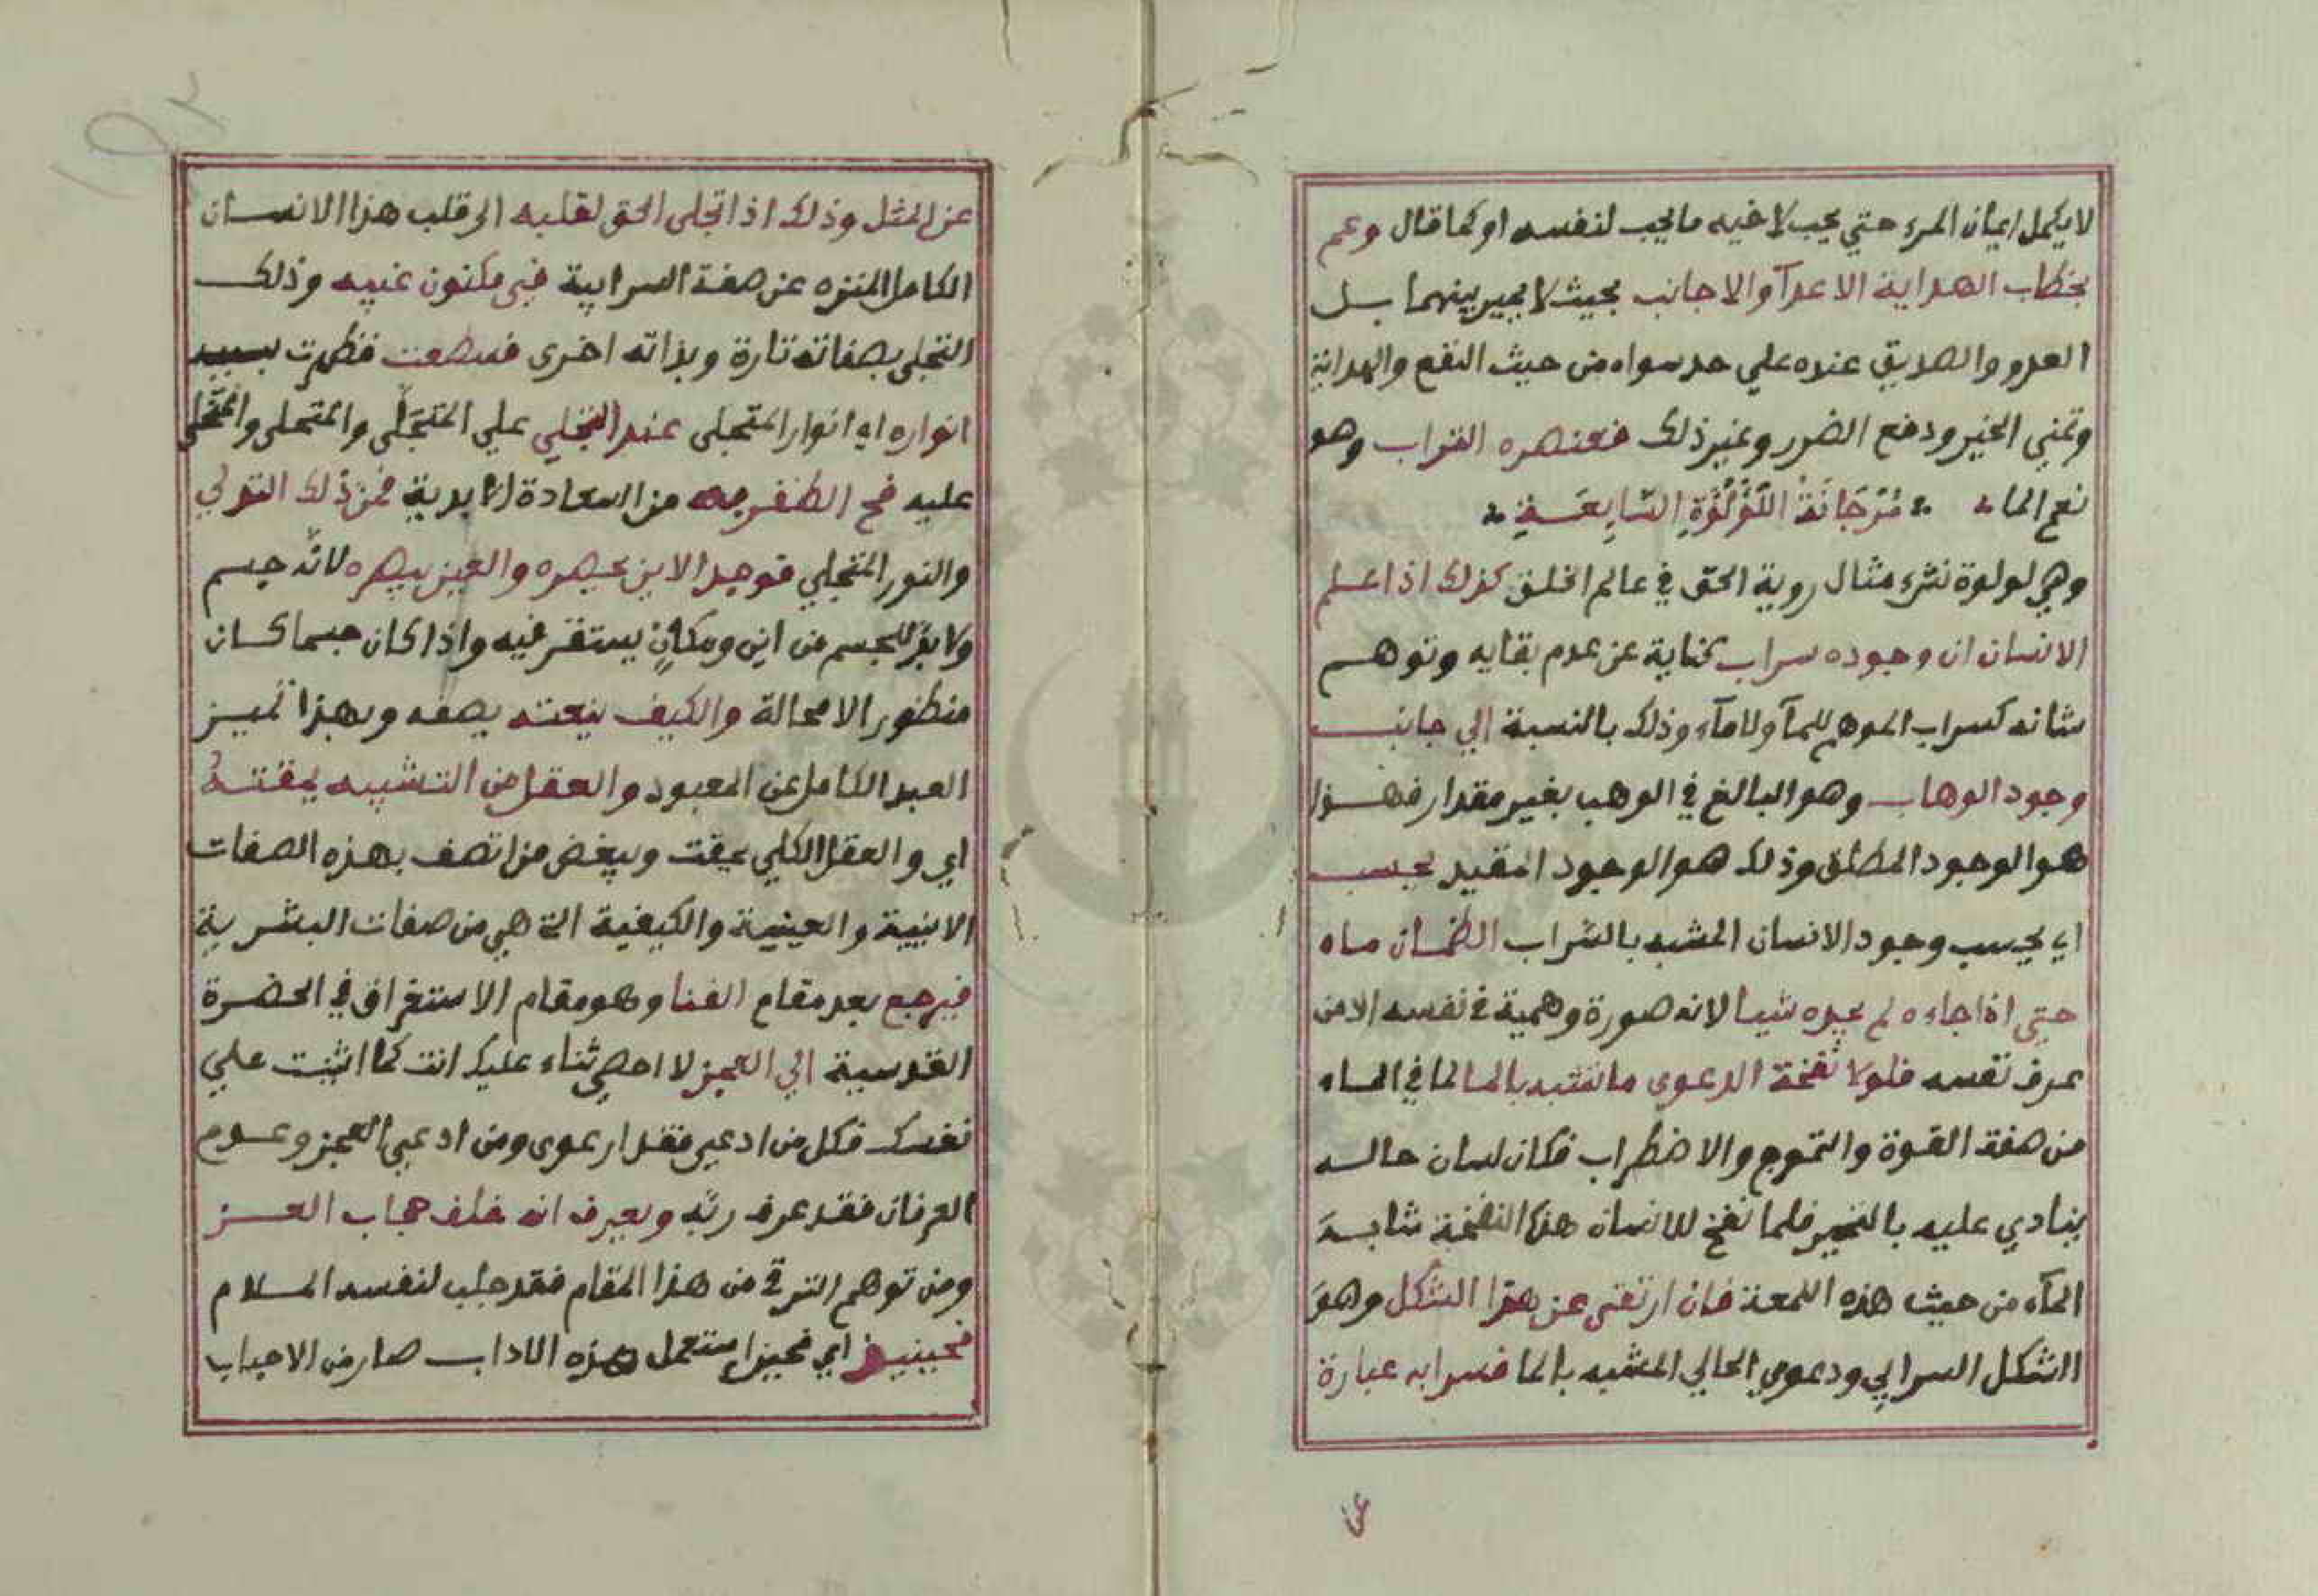 لا يكمل ايمان المرء حتي يحب لاخيه ما يحب لنفسه او كما قال وعم
بخطاب الهداية الاعدآ والاجانب بحيث لا يميز بينهما بل
العدو والصديق عنده علي حد سواء من حيث النفع والهداية
وتمني الخير ودفع الضرر وغير ذلك فعنصره التراب وهو
نعم الماء مُرْجَانَةُ اللُّؤْلُؤَةِ السَّابِعَةِ
وهي لولوة نشرء مثال روية الحق في عالم الخلق كذلك اذا علم
الانسان ان وجوده سراب كناية عن عدم بقايه وتوهم
شانه كسراب الموهم للمآ ولا مآء وذلك بالنسبة الي جانب
وجود الوهاب وهو البالغ في الوهب بغير مقدار فهذا
هو الوجود المطلق وذلك هو الوجود المقيد يحسب
اي يحسب وجود الانسان المشبه بالشراب الظمان ماء
حتي اذا جاءه لم يجده شيا لانه صورة وهمية في نفسه الا من
عرف نفسه فلولا نفخة الدعوي ما تشبه بالما لما في الماء
من صفة القوة والتموج والاضطراب فكان لسان حاله
ينادي عليه بالتحير فلما نفخ للانسان هذه النفخة شابه
المآء من حيث هذه اللمعة فان ارتقي عن هذا الشكل وهو
الشكل السرابي ودعوي الحالي المشبه بالما فسرابه عبارة
عن
عن المثل وذلك اذا تجلي الحق لقلبه اي قلب هذا الانسان
الكامل المنزه عن صفة السرابية فبي مكنون غيبه وذلك
التجلي بصفاته تارة وبذاته اخري فسطعت فظهرت بسبب
انواره اي انوار المتجلي عند التجلي علي المتجلّي والمتحلي والمتخلي
عليه فح الظفر من السعادة الابدية فمن ذلك التولي
والنور المتجلي فوجد الاين يحصره والعين يبصره لانه جسم
ولا بدّ للجسم من اين ومكانٍ يستقر فيه واذا كان جسما كان
منظورا لا محالة والكيف ينعته يصفه وبهذا تميز
العبد الكامل عن المعبود والعقل من التشبيه يمقته
اي والعقل الكلي يمقت ويبغض من اتصف بهذه الصفات
الاينية والعينية والكيفية التي هي من صفات البشرية
فيرجع بعد مقام الفنا وهو مقام الاستغراق في الحضرة
القدسية الي العجز لا احصي ثناء عليك انت كما اثنيت علي
نفسك فكل من ادعي فقد ارعوي ومن ادعي العجز وعدم
العرفان فقد عرف ربّه وبعرف انه خلف حجاب العز
ومن توهم الترقي من هذا المقام فقد جلب لنفسه الملام
فحينيذ اي فحين استعمل هذه الاداب صار من الاحباب